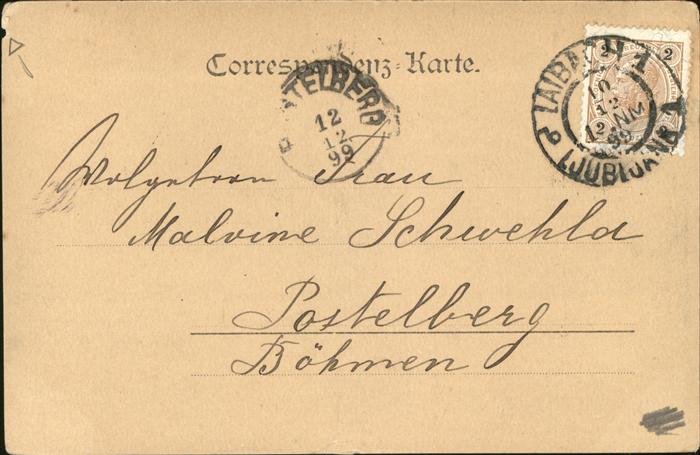 Correspondenz-Karte.
LAIBACH 1
10
12
NM
99
LJUBLJANA 1
2 2
2 2
POSTELBERG
12
12
99
Wolgeboren Frau
Malvine Schwehla
Postelberg
Böhmen